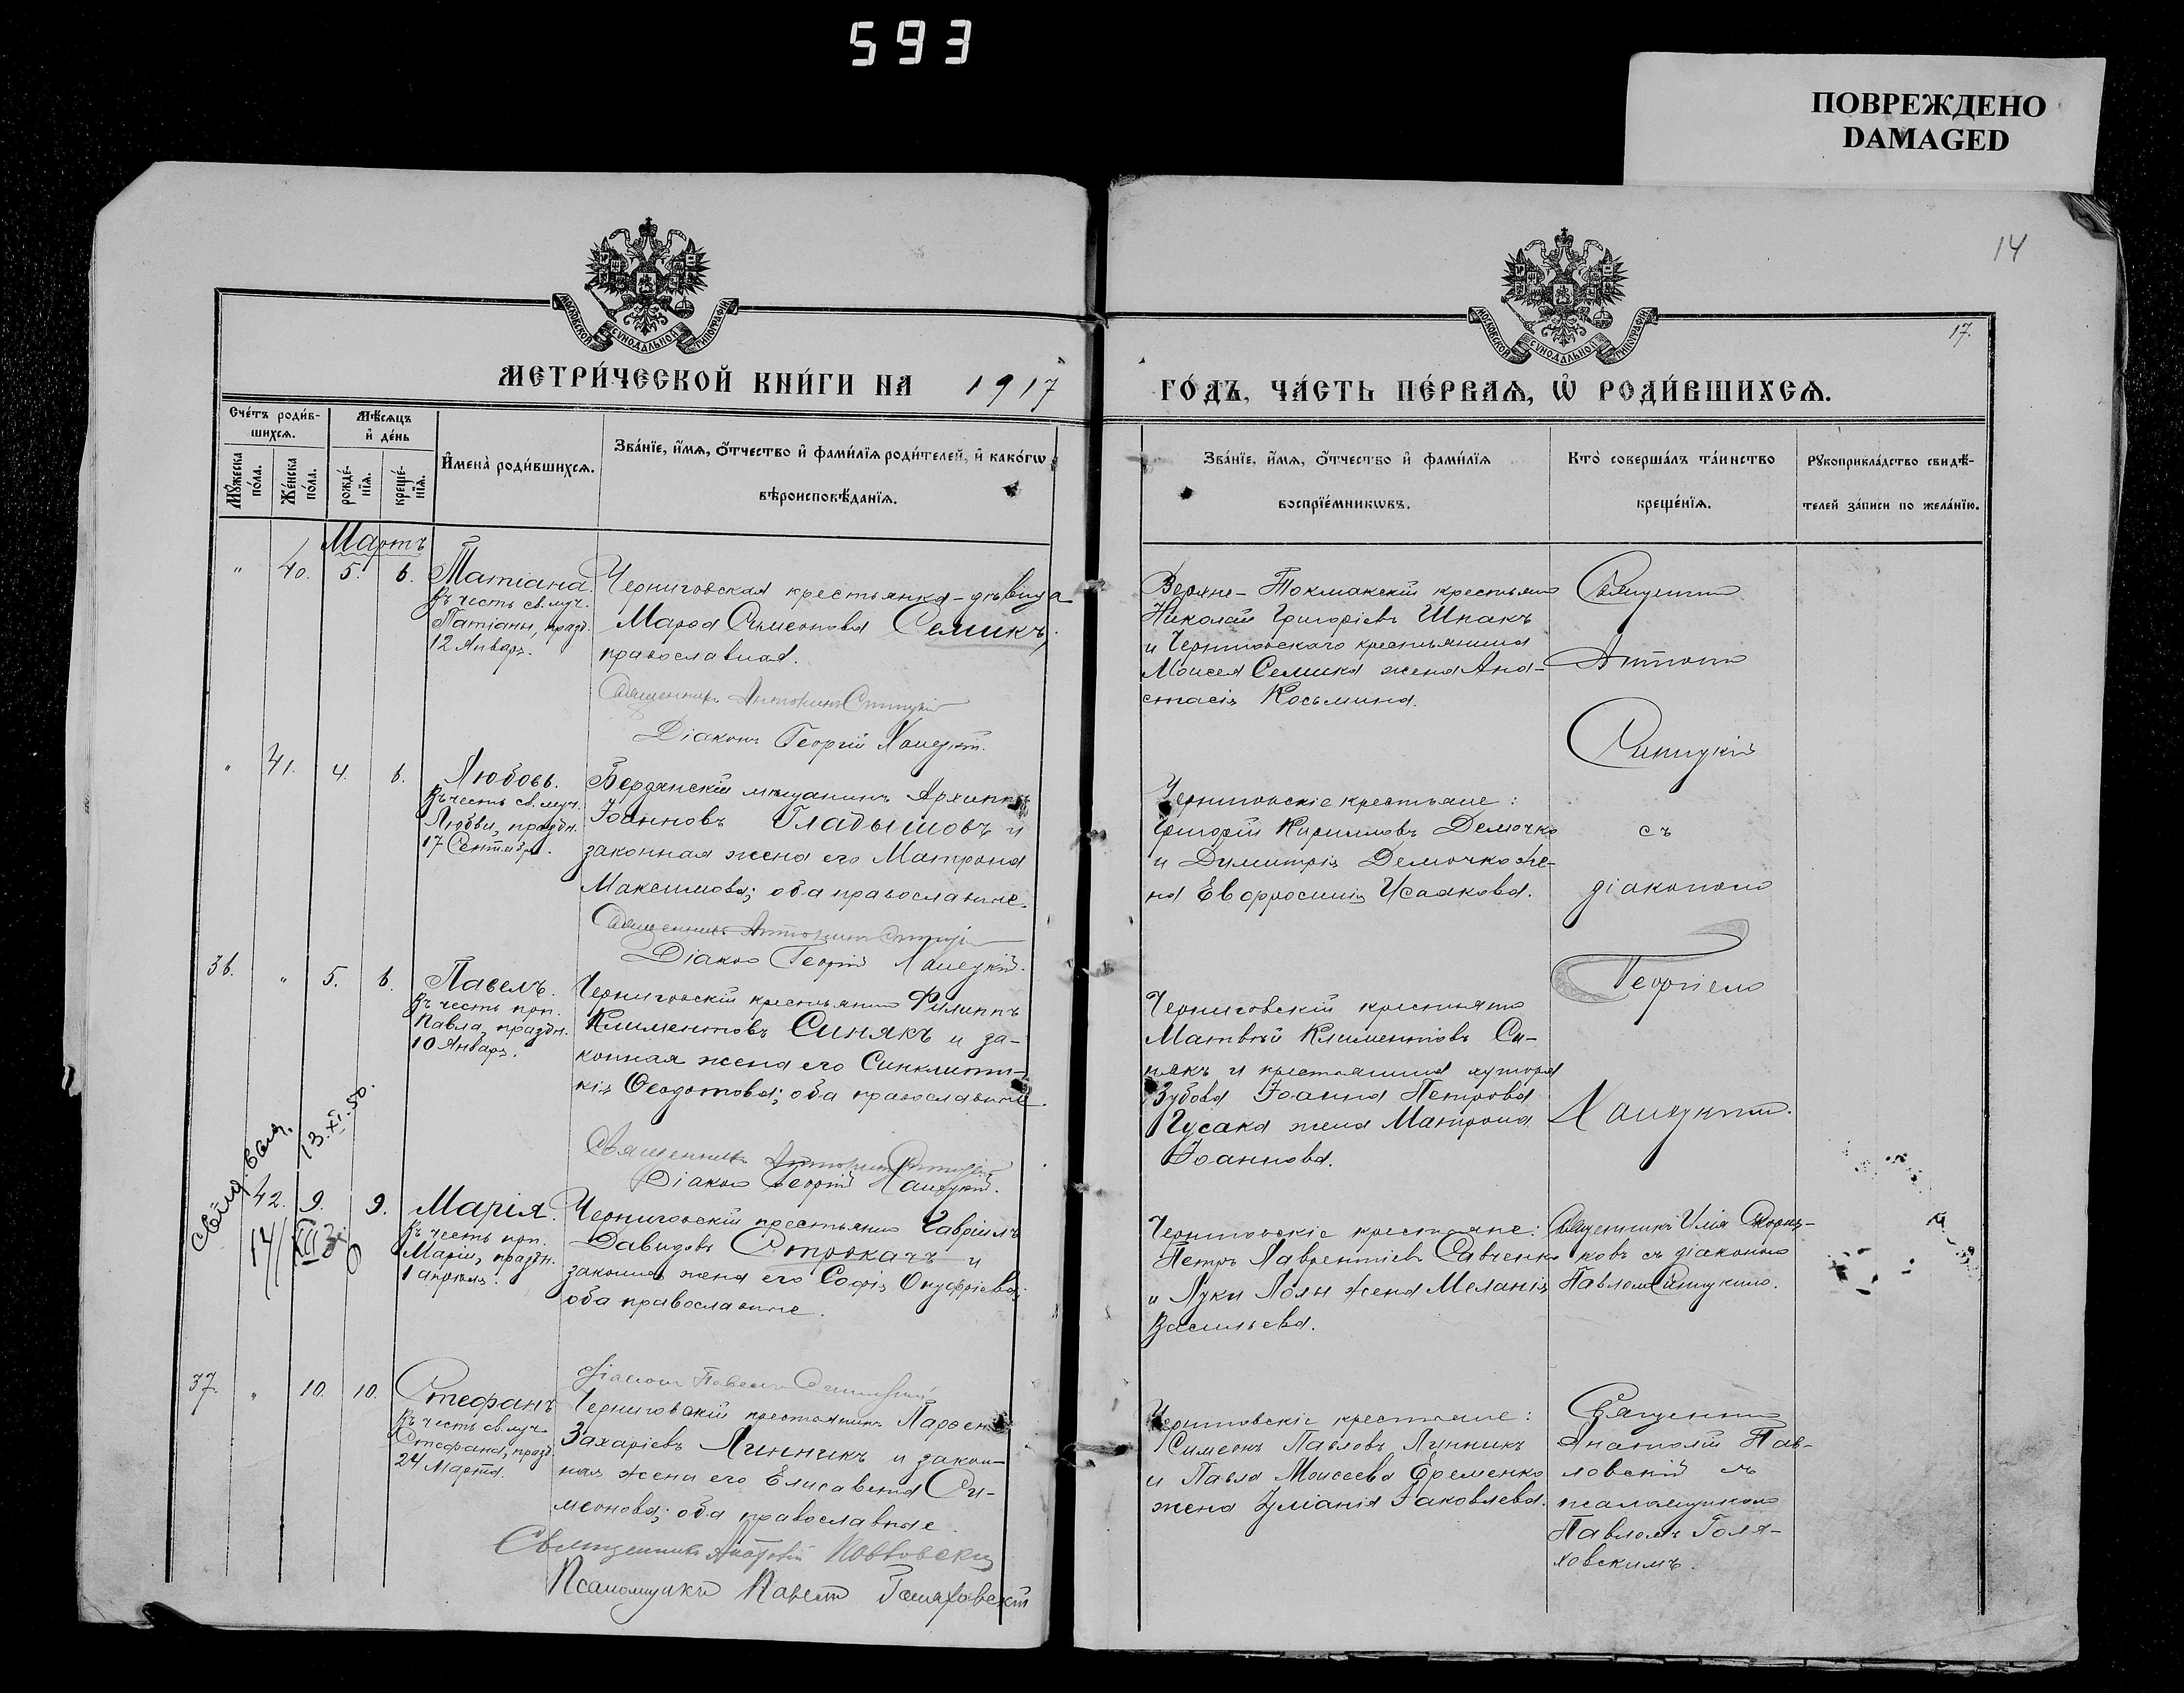 593
ПОВРЕЖДЕНО
DAMAGED
14
17.
МОСКОВСКОЙ СѴНОДАЛЬНОЙ ТИПОГРАФІИ
МОСКОВСКОЙ СѴНОДАЛЬНОЙ ТИПОГРАФІИ
МЕТРИ́ЧЕСКОЙ КНИ́ГИ НА 1917
ГО́ДЪ, ЧА́СТЬ ПЕ́РВАѦ, Ѡ҆ РОДИ́ВШИХСѦ.
Сче́тъ роди́в-
шихсѧ.
Мѣ́сѧцъ
и҆ де́нь
Мꙋ́жеска
по́ла.
Же́нска
по́ла.
рожде́-
нїѧ.
креще́-
нїѧ.
И҆мена̀ роди́вшихсѧ.
Зва́нїе, и҆́мѧ, ѻ҆́тчество и҆ фами́лїѧ роди́телей, и҆ како́гѡ
вѣроисповѣ́данїѧ.
Зва́нїе, и҆́мѧ, ѻ҆́тчество и҆ фами́лїѧ
воспрїе́мникѡвъ.
Кто̀ соверша́лъ та́инство
креще́нїѧ.
Рꙋкоприкла́дство свидѣ́-
телей за́писи по жела́нїю.
Мартъ
" 40. 5. 6. Татіана.
Въ честь св. муч.
Татіаны, празд.
12 Январ.
Черниговская крестьянка-дѣвица
Марѳа Симеонова Семикъ,
православная.
Священникъ Антонин Синицкій
Діаконъ Георгій
Верхне-Токмакскій крестьянин
Николай Григоріевъ Шпакъ
и Черниговскаго крестьянина
Моисея Семика жена Ана-
стасія Косьмина.
Священник
Антонин
Синицкій
съ
діакономъ
Георгіемъ
" 41. 4. 6. Любовь.
Въ честь св. муч.
Любви, праздн.
17 Сентября.
Бердянскій мѣщанинъ Архиппъ
Іоанновъ Гладышовъ и
законная жена его Матрона
Максимова; оба православные.
Священникъ Антонин Синицкій
Діакон Георгій
Черниговскіе крестьяне:
Григорій Кирилловъ Демочко
и Димитрія Демочко же-
на Евфросинія Исаакова.
36. " 5. 6. Павелъ.
Въ честь прп.
Павла, праздн.
10 Январ.
Черниговскій крестьянин Филиппъ
Климентовъ Синякъ и за-
конная жена его Синклити-
кія Ѳеодотова; оба православные.
Священникъ Антонин Синицкій
Діакон Георгій
Черниговскій крестьянин
Матвѣй Климентовъ Си-
някъ и крестьянина хутора
Зубова Іоанна Петрова
Гусака жена Матрона
Іоаннова.
13.XI.50.
42. 9. 9. Марія.
Въ честь прп.
Маріи, праздн.
1 апрѣля.
Черниговскій крестьянин Гавріилъ
Давидовъ Строкачъ и
законная жена его Софія Онуфріева;
оба православные.
Діакон Павелъ Синицкій
Черниговскіе крестьяне:
Петръ Лаврентіевъ Савченко
и Луки Лоян жена Меланія
Васильева.
Священникъ Илія
ковъ съ діакономъ
Павломъ Синицкимъ.
37. " 10. 10. Стефанъ
Въ честь св. муч.
Стефана, празд.
24 Марта.
Черниговскій крестьянинъ Парѳенъ
Захаріевъ Линникъ и закон-
ная жена его Елисавета Си-
меонова; оба православные.
Священникъ Анатолій Павловскій
Псаломщикъ Павелъ Голяховскій
Черниговскіе крестьяне:
Симеонъ Павловъ Линникъ
и Павла Моисеева Еременко
жена Іуліанія Іаковлева.
Священник
Анатолій Пав-
ловскій съ
псаломщиком
Павломъ Голя-
ховскимъ.